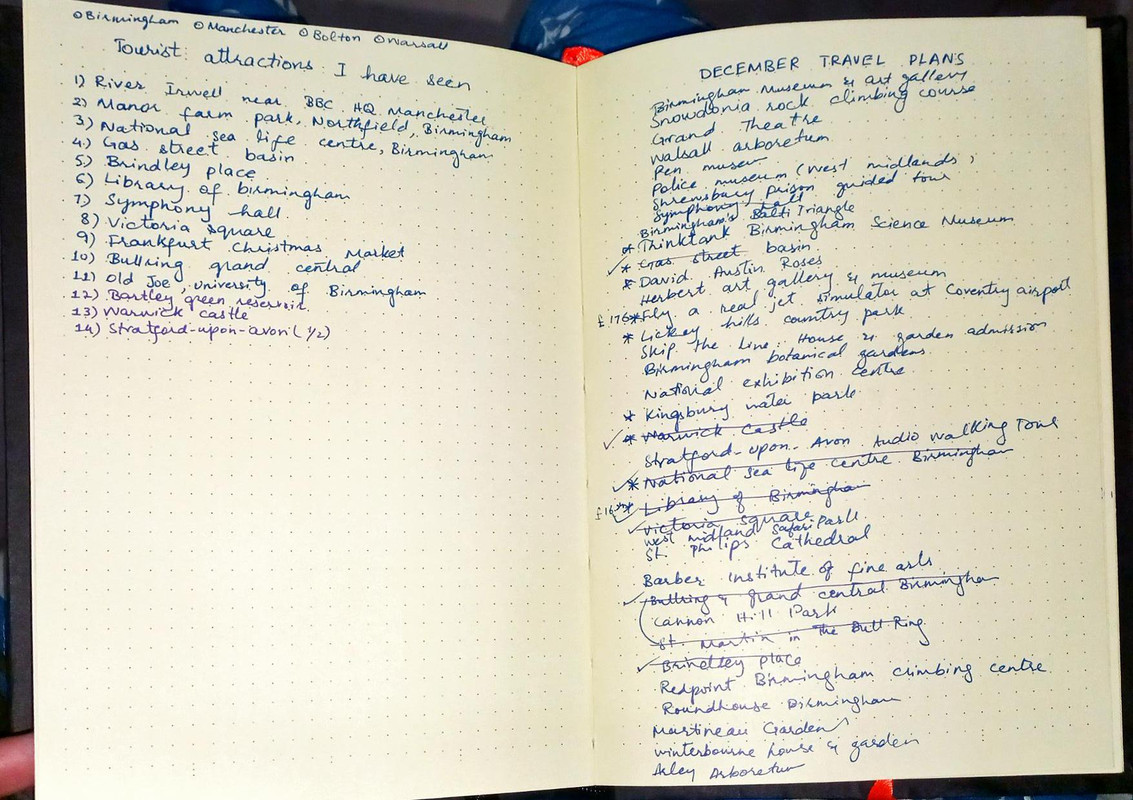 ⊙Birmingham ⊙Manchester ⊙Bolton ⊙Warsall
Tourist attractions I have seen
1) River Irwell near BBC HQ Manchester
2) Manor farm park, Northfield, Birmingham
3) National sea life centre, Birmingham
4) Gas street basin
5) Brindley place
6) Library of birmingham
7) Symphony hall
8) Victoria square
9) Frankfurt Christmas Market
10) Bullring grand central
11) Old Joe, university of Birmingham
12) Bartley green reservoir
13) Warwick castle
14) Stratford-upon-avon (1/2)
DECEMBER TRAVEL PLANS
Birmingham Museum & art gallery
Snowdonia rock climbing course
Grand Theatre
Walsall arboretum
Pen museum
Police museum (West midlands)
Shrewsbury prison guided tour
Symphony hall
Birmingham's Balti Triangle
* Thinktank Birmingham Science Museum
✓ * Gas street basin
* David Austin Roses
Herbert art gallery & museum
£176 * Fly a real jet simulator at Coventry airport
* Lickey hills country park
Skip the Line: House & garden admission
Birmingham botanical gardens
National exhibition centre
* Kingsbury water park
✓ * Warwick Castle
Stratford-upon-Avon Audio walking Tour
✓ * National sea life centre Birmingham
Library of Birmingham
✓ Victoria square
West midland Safari Park
St. Philips Cathedral
Barber institute of fine arts
✓ Bullring & grand central Birmingham
Cannon Hill Park
St. Martin in the Bull Ring
✓ Brindley place
Redpoint Birmingham climbing centre
Roundhouse Birmingham
Martineau Gardens
Winterbourne house & garden
Arley Arboretum